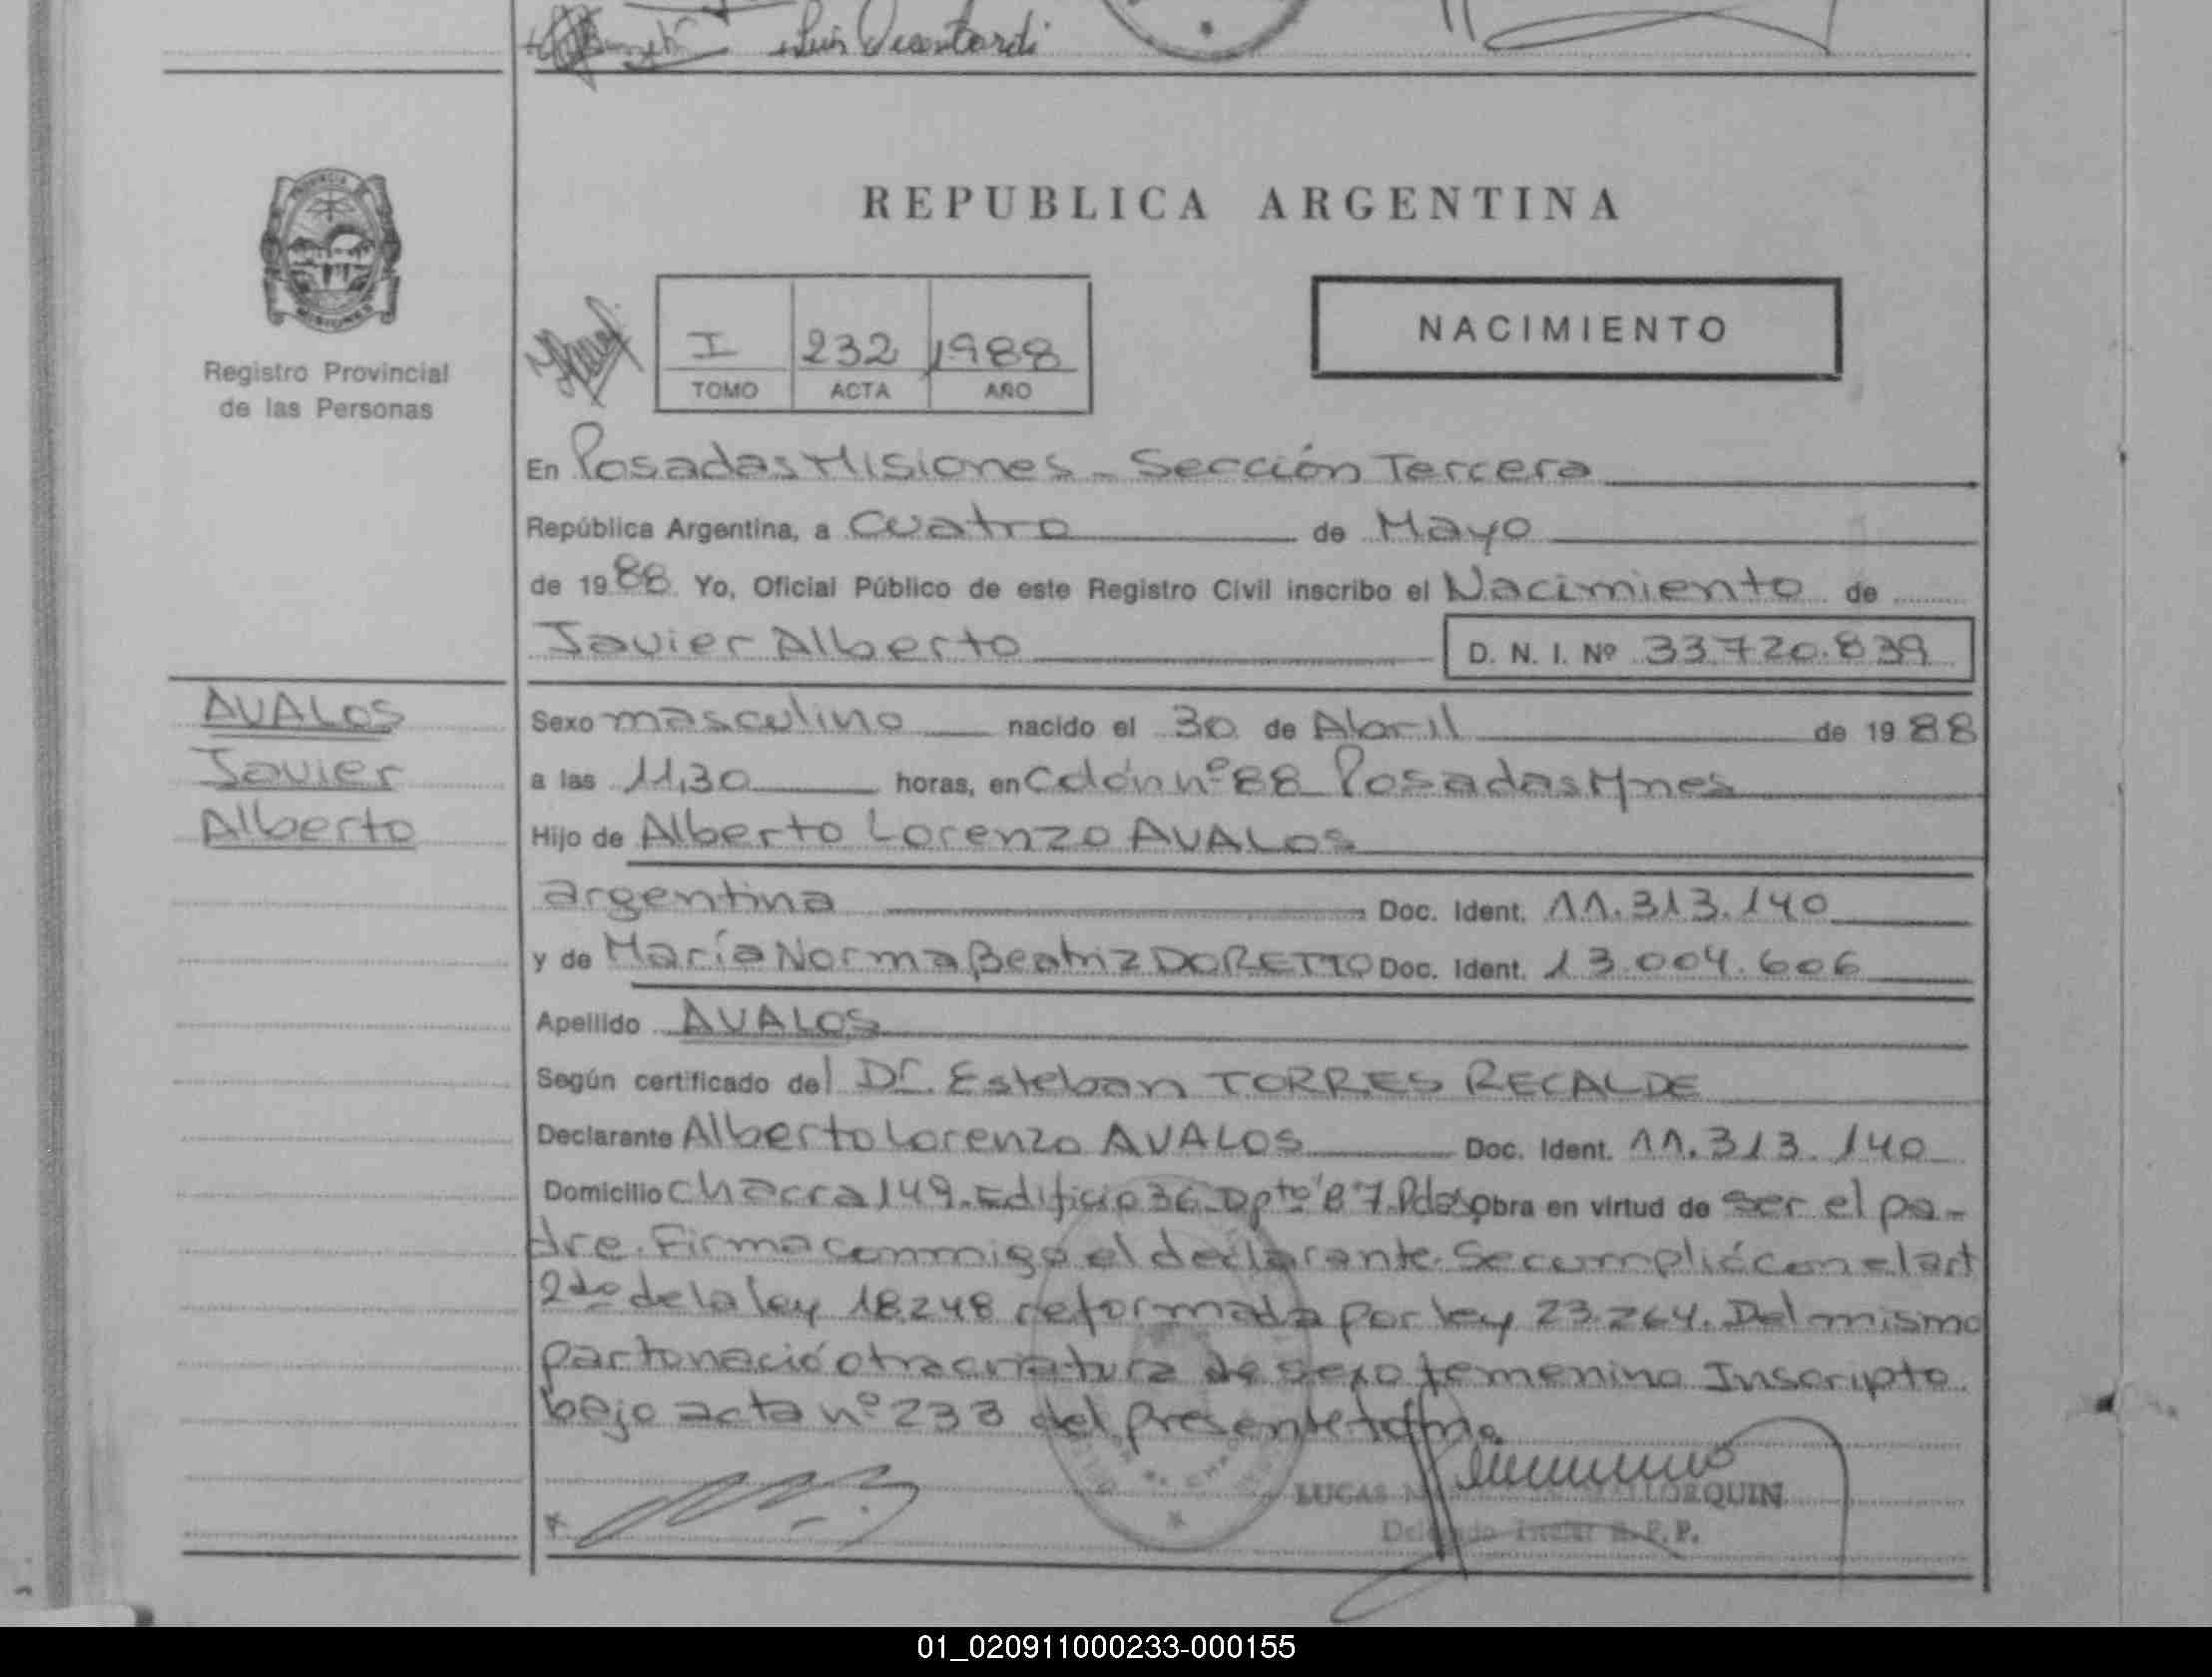 Luis Disentardi
REPUBLICA ARGENTINA
PROVINCIA DE
MISIONES
Registro Provincial
de las Personas
I 232 1988
TOMO ACTA AÑO
NACIMIENTO
En Posadas Misiones - Sección Tercera
República Argentina, a Cuatro de Mayo
de 1988 Yo, Oficial Público de este Registro Civil inscribo el Nacimiento de
Javier Alberto D. N. I. Nº 33.720.839
AVALOS
Javier
Alberto
Sexo masculino nacido el 30 de Abril de 1988
a las 11,30 horas, en Colón nº 88 Posadas Mnes
Hijo de Alberto Lorenzo AVALOS
argentina Doc. Ident. 11.313.140
y de María Norma Beatriz DORETTO Doc. Ident. 13.004.606
Apellido AVALOS
Según certificado del Dr. Esteban TORRES RECALDE
Declarante Alberto Lorenzo AVALOS Doc. Ident. 11.313.140
Domicilio Chacra 149. Edificio 36 Dpto "B" 7. Pdas Obra en virtud de ser el pa-
dre. Firma conmigo el declarante. Se cumplió con el art
2do de la ley 18.248 reformada por ley 23.264. Del mismo
parto nació otra criatura de sexo femenino Inscripto
bajo acta nº 233 del presente tomo.
LUCAS QUIN
R. P. P.
01_020911000233-000155